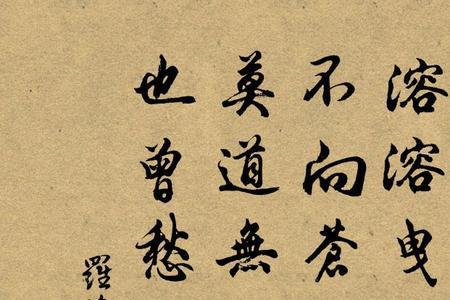 溶溶曳
不向蒼
莫道無
也曾愁
羅